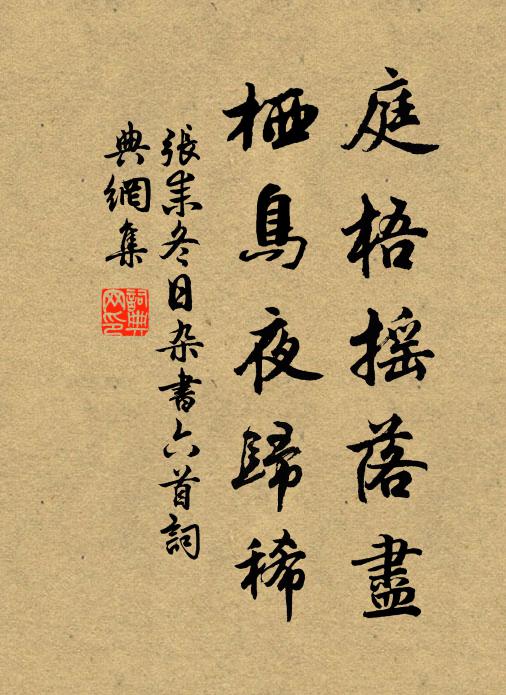 庭梧摇落盡
栖鳥夜歸稀
張耒冬日杂書六首詞
典網集
詞典網印